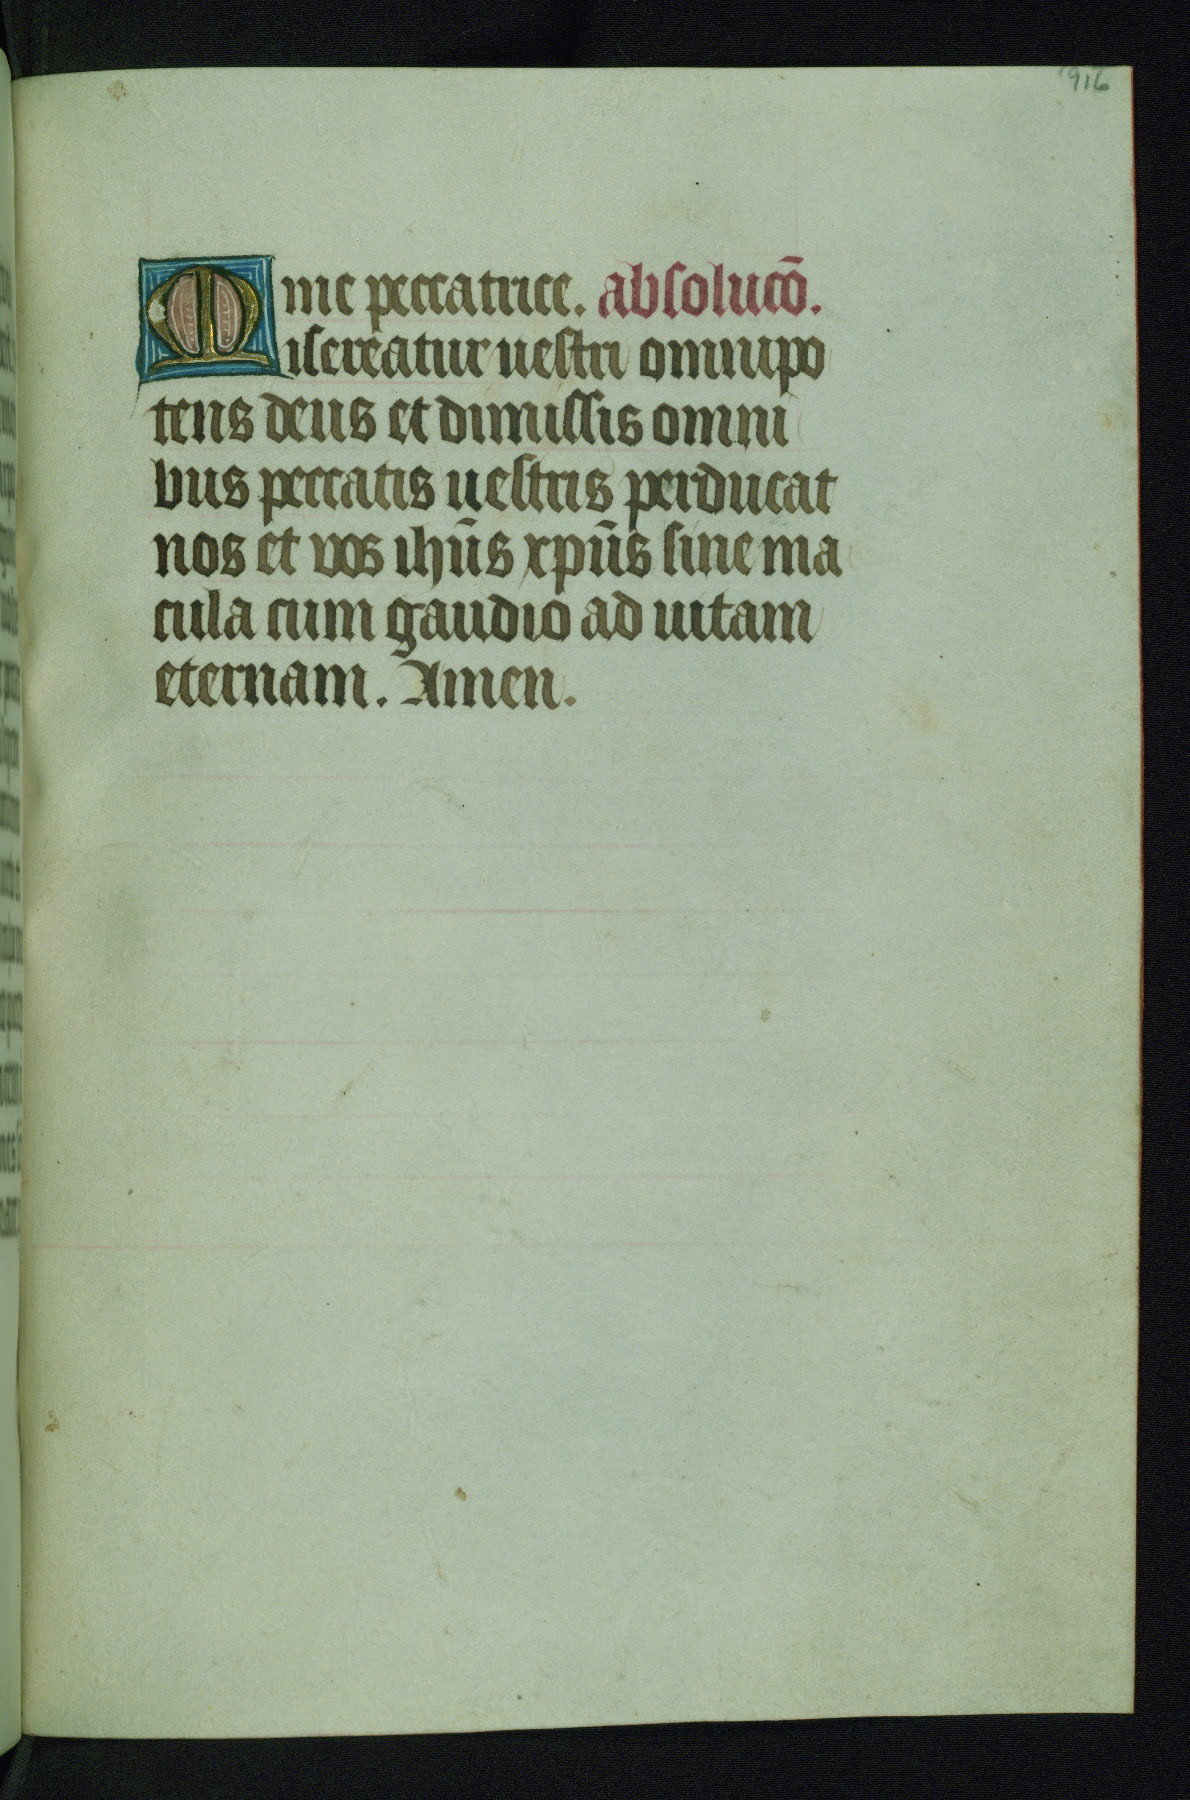 916
me peccatrice. absolucō.
Misereatur uestri omnipo
tens deus et dimissis omni
bus peccatis uestris perducat
nos et vos ihūs xpūs sine ma
cula cum gaudio ad uitam
eternam. Amen.